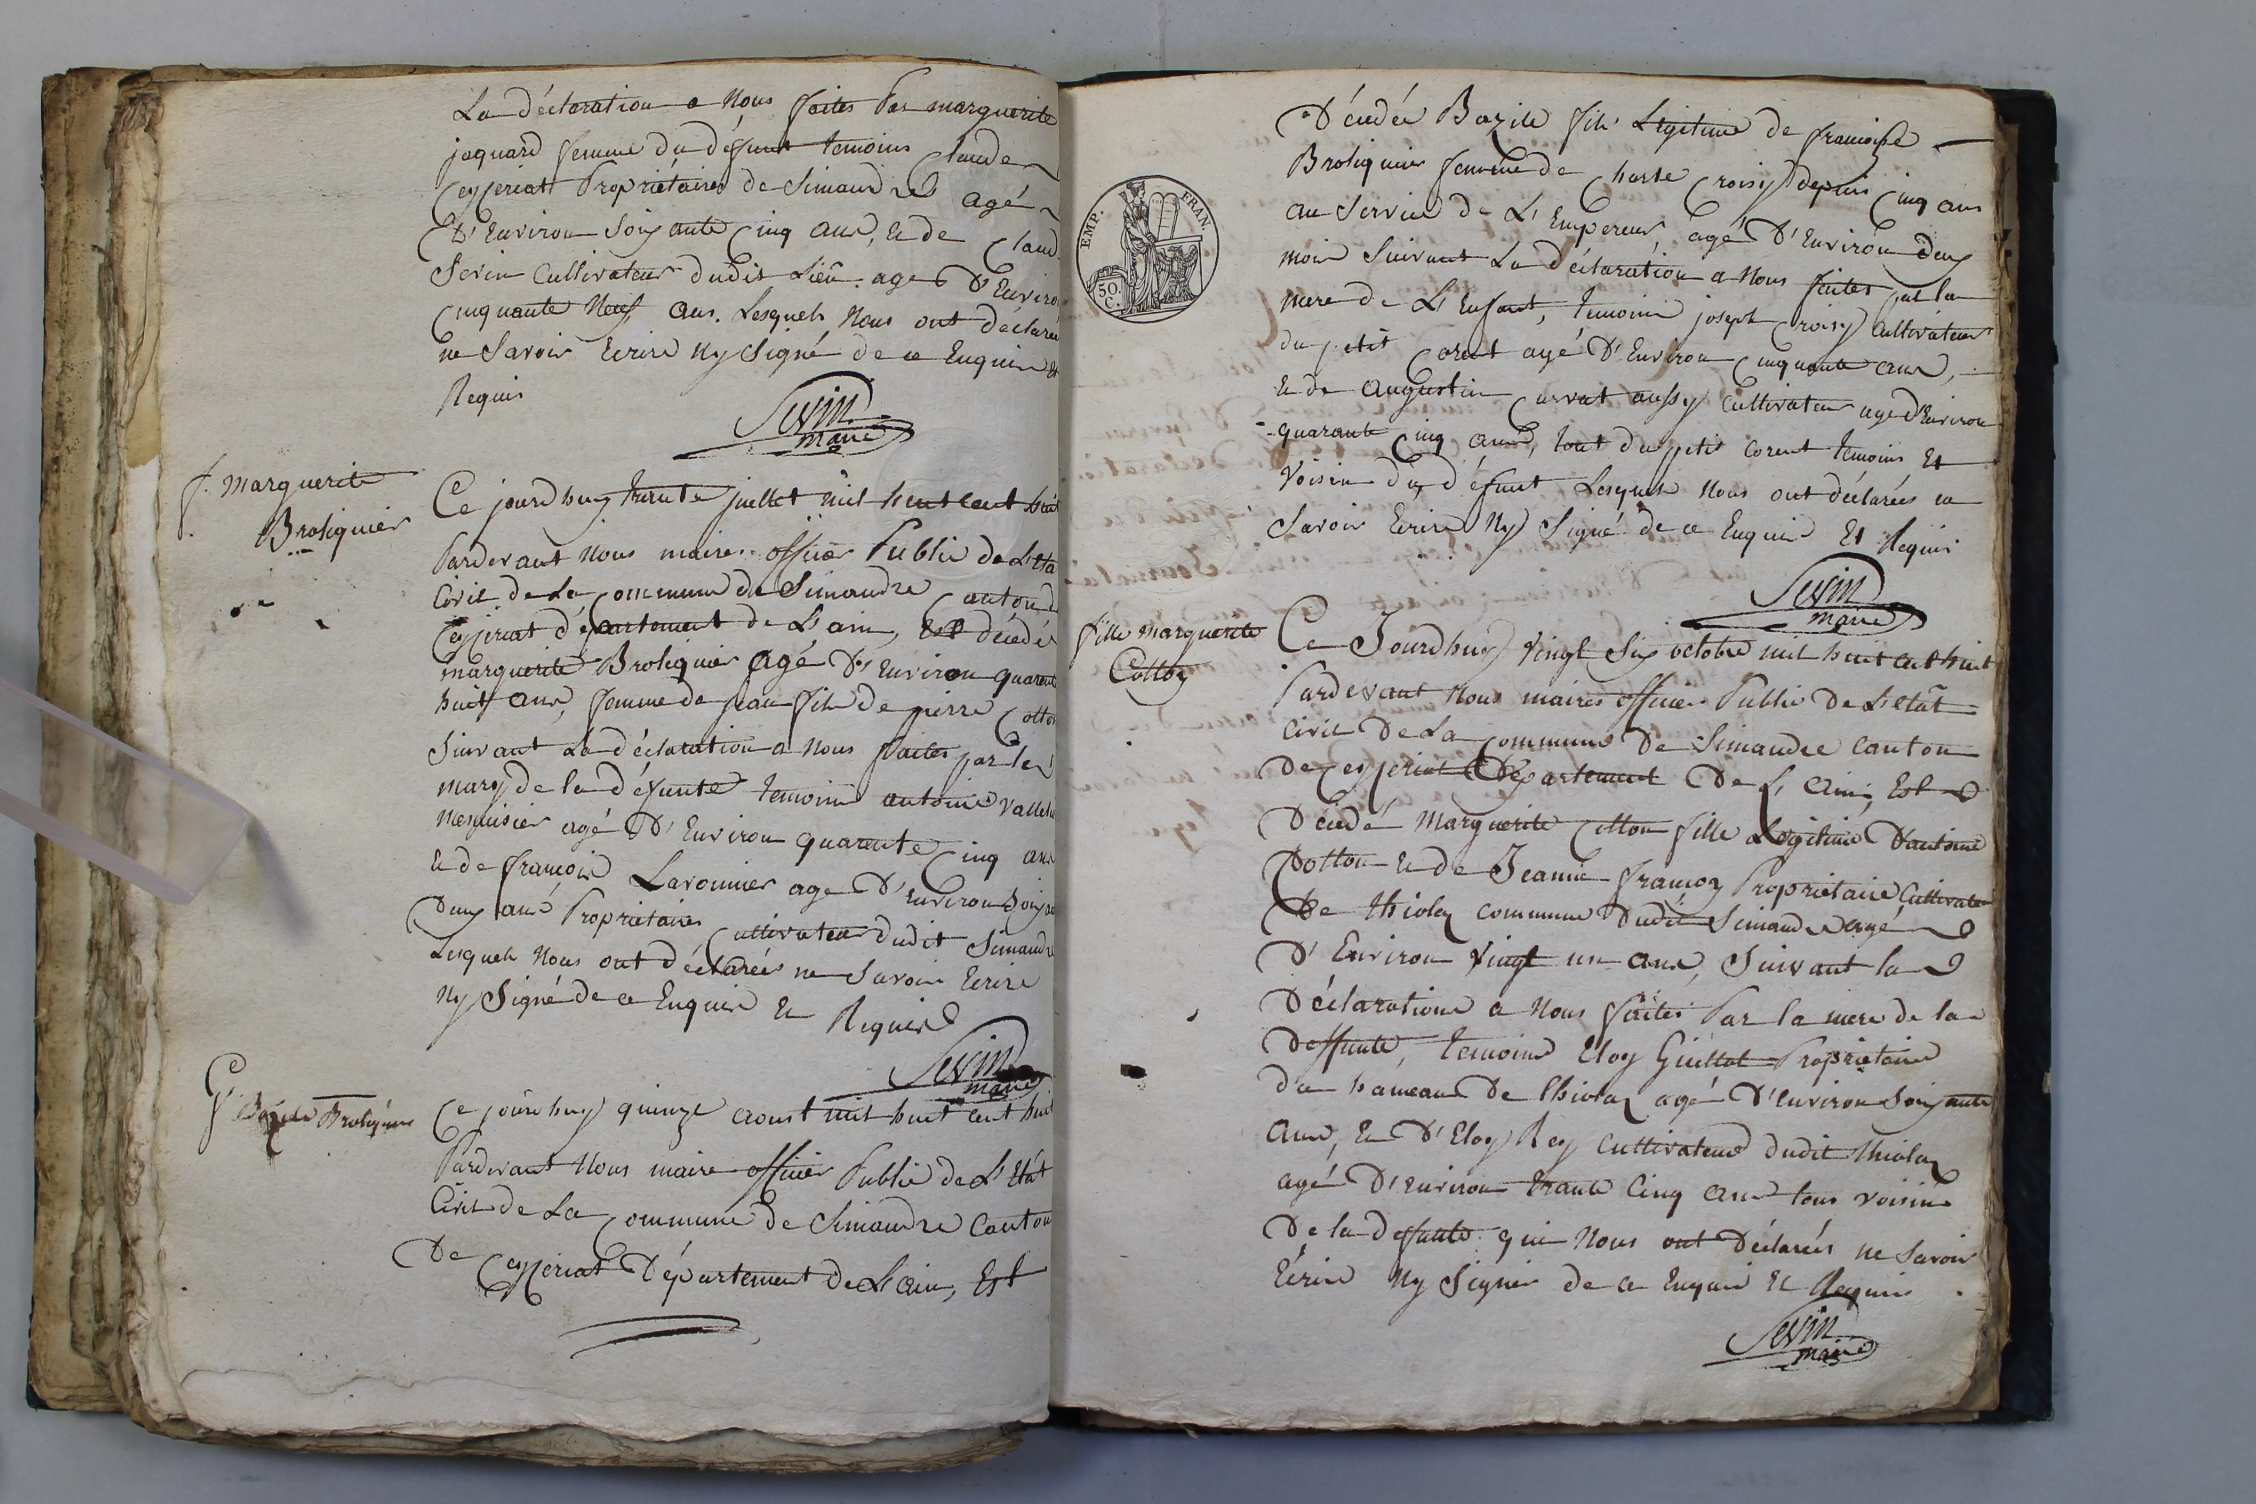 La déclaration a Nous faites Par marguerite
jaquard femme du défunt temoins Claude
Ceyzeriat Propriétaires de Simandre agé
D'Environ Soixante Cinq ans, et de Claud
Sevin Cultivateur dudit Lieu. age D'Enviro
Cinquante Neuf ans. Lesquels Nous ont déclarée
ne Savoir Ecrire Ny Signé de ce Enquis et
Requis
Sevin
maire
f. marguerite
Broliquier
Ce jourdhuy trente juillet mil huit cent huit
Pardevant Nous maire officier Public de L'Eta
Civil de La Commune de Simandre Canton d
Ceyzeriat département de L'ain, Est décedée
marguerite Broliquier agé D'Environ quarent
huit ans, femme de jean fils de pierre Cotton
Suivant La déclaration a Nous faites par le
mary de la défunte temoins antoine vallet
menuisier agé D'Environ quarente Cinq ans
et de francois Lavonnier age D'Environ Soixan
Deux ans Propriétaires Cultivateur dudit Simandre
Lesquels Nous ont déclarées ne Savoir Ecrire
Ny Signé de ce Enquis et Requis
Sevin
maire
G. Bazile Broliquier
Ce jourdhuy quinze aoust mil huit cent huit
Pardevant Nous maire officier Public de L'Etát
Civil de La Commune de Simandre Canton
De Ceyzeriat Département de L'ain, Est
EMP. FRAN.
50.
C.
Décedée Bazile fils Légitime de francoise
Broliquier femme de Charle Croisy depuis Cinq ans
au Service de L'Empereur, agé D'Environ deux
mois Suivant La déclaration a Nous faites par la
mere de L'Enfant, temoins joseph Croisy Cultivateur
du petit Corent agé D'Environ Cinquante ans,
et de augustin Carrat aussy Cultivateur age d'Environ
quarante Cinq ans, tout du petit Corent temoins Et
Voisin du défunt Lesquels Nous ont déclarées ne
Savoir Ecrire Ny Signé de ce Enquis Et Requis
Sevin
maire
fille marguerite
Cotton
Ce Jourdhuy vingt Six octobre mil huit cent huit
Pardevant Nous maires officier Public de L'etat
Civil De La Commune De Simandre Canton
De Ceyzeriat Département De L'ain, Est
Décedé Marguerite Cotton fille Légitime D'antoine
Cotton et de Jeanne francoy Propriétaire Cultivateur
De thiolay commune Dudit Simandre agé
D'Environ vingt un ans, Suivant la
Déclarations a Nous faites Par la mere de la
Deffunte, temoins Eloy Guillot Propriétaire
du hameau De thiolay agé D'environ Soixante
ans, et D'Eloy Rey Cultivateur dudit thiolay
agé D'environ trante Cinq ans tous voisins
De la deffunte qui Nous ont Déclarées ne Savoir
Ecrire Ny Signer de ce Enquis Et Requis
Sevin
maire